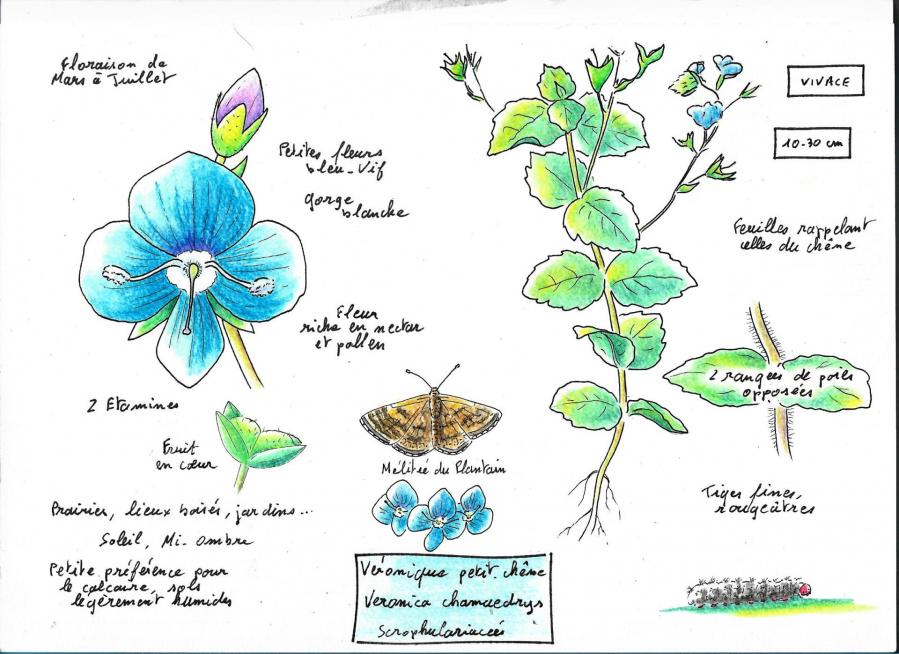 Floraison de
Mars à Juillet
Petites fleurs
bleu-vif
gorge
blanche
Fleur
riche en nectar
et pollen
2 Etamines
Fruit
en cœur
Prairies, lieux boisés, jardins...
Soleil, Mi-ombre
Petite préférence pour
le calcaire, sols
légèrement humides
Mélitée du Plantain
Véronique petit.chêne
Veronica chamaedrys
Scrophulariacées
VIVACE
10-30 cm
Feuilles rappelant
celles du chêne
2 rangées de poils
opposées
Tiges fines,
rougeâtres